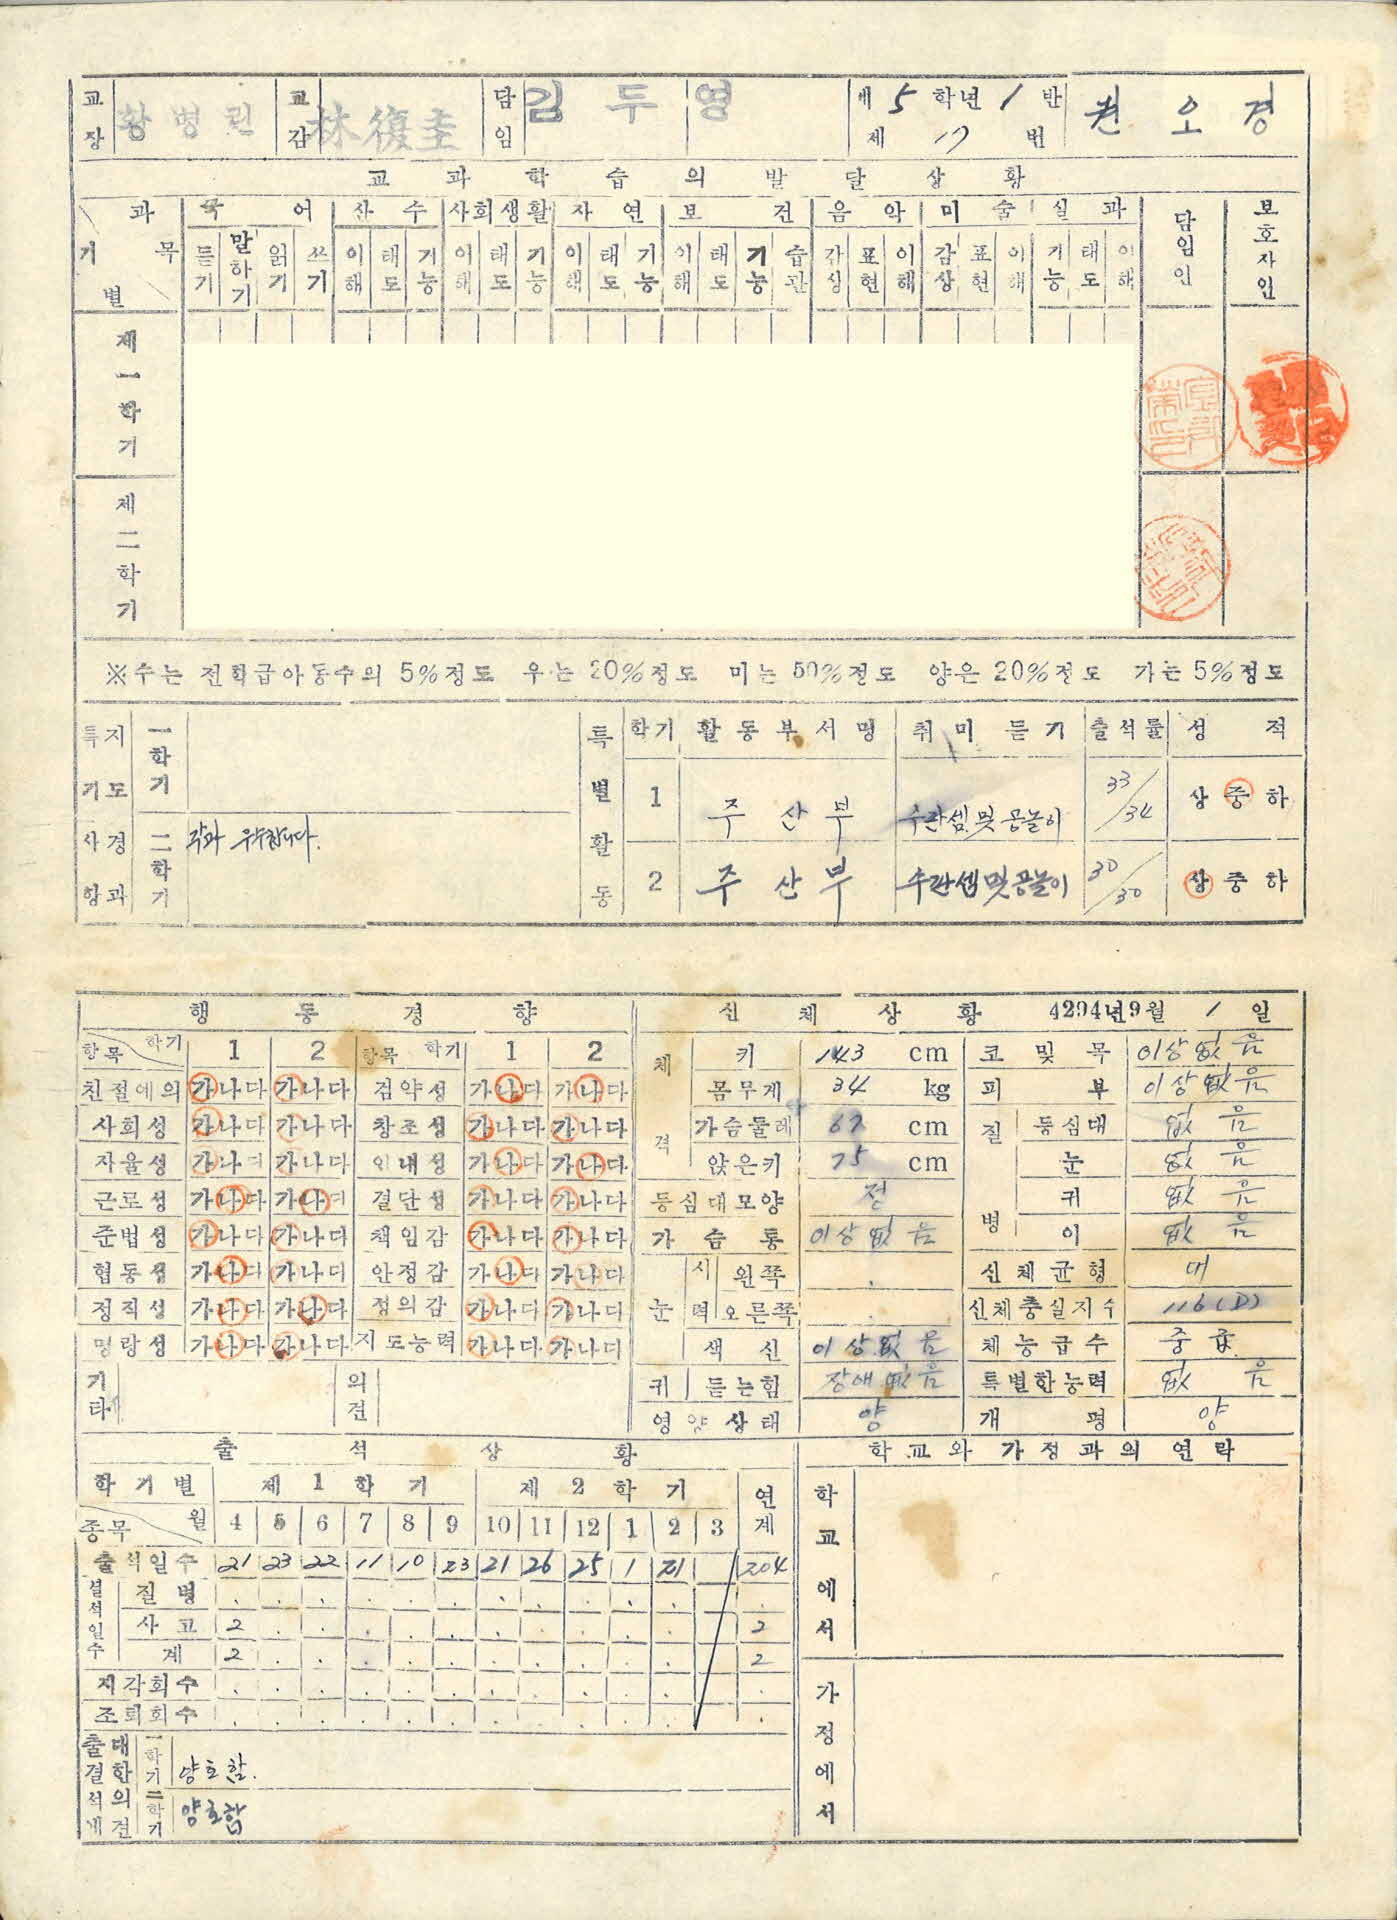 교장 황병권 교감 林復圭 담임 김두영 제 5 학년 1 반 제 17 번 권오경
교 과 학 습 의 발 달 상 황
과목 기별 국어 산수 사회생활 자연 보건 음악 미술 실과 담임인 보호자인
듣기 말하기 읽기 쓰기 이해 태도 기능 이해 태도 기능 이해 태도 기능 이해 태도 기능 습관 감상 표현 이해 감상 표현 이해 기능 태도 이해
제一학기
제二학기
※수는 전학급아동수의 5%정도 우는 20%정도 미는 50%정도 양은 20%정도 가는 5%정도
특기사항 지도경과 一학기
二학기 각과 우수합니다.
특별활동 학기 활동부서명 취미 듣기 출석률 성적
1 주산부 수판셈및 공놀이 33/34 상 중 하
2 주산부 수판셈및공놀이 30/30 상 중 하
행 동 경 향
항목 학기 1 2 항목 학기 1 2
친절예의 가나다 가나다 검약성 가나다 가나다
사회성 가나다 가나다 창조성 가나다 가나다
자율성 가나다 가나다 인내성 가나다 가나다
근로성 가나다 가나다 결단성 가나다 가나다
준법성 가나다 가나다 책임감 가나다 가나다
협동성 가나다 가나다 안정감 가나다 가나다
정직성 가나다 가나다 정의감 가나다 가나다
명랑성 가나다 가나다 지도능력 가나다 가나다
기타 의견
신 체 상 황 4294년9월 1 일
체격 키 143 cm 코 및 목 이상없음
몸무게 34 kg 피부 이상없음
가슴둘레 67 cm 질병 등심대 없음
앉은키 75 cm 눈 없음
등심대모양 정 귀 없음
가슴통 이상없음 이 없음
눈 시력 왼쪽 . 신체균형 대
오른쪽 . 신체충실지수 116(D)
색신 이상없음 체능급수 중급
귀 듣는힘 장애없음 특별한능력 없음
영양상태 양 개평 양
출 석 상 황
학기별 제1학기 제2학기 연계
종목 월 4 5 6 7 8 9 10 11 12 1 2 3
출석일수 21 23 22 11 10 23 21 26 25 1 21 204
결석일수 질병 . . . . . . . . . . . .
사고 2 . . . . . . . . . . 2
계 2 . . . . . . . . . . 2
지각회수 . . . . . . . . . . . .
조퇴회수 . . . . . . . . . . . .
출결석에 대한의견 一학기 양호함.
二학기 양호함
학교와 가정과의 연락
학교에서
가정에서